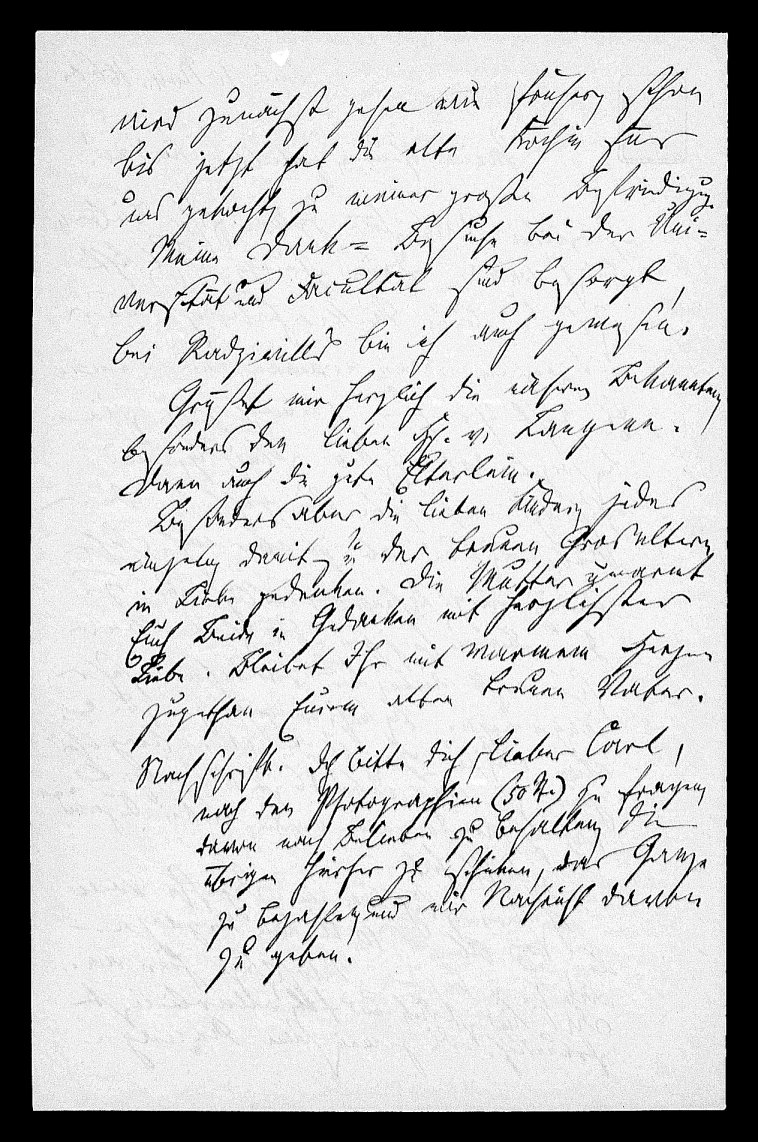 wird zunächst gehen uns früher schon
bis jetzt hat die alte Köchin für
uns gekocht, zu meiner großen Befriedigung.
Meine Dank= Besuche bei der Uni=
versität und Facultät sind besorgt,
bei Radziwill's bin ich auch gewesen.
Grüßet mir herzlich die näheren Bekannten,
besonders den lieben H. v. Langenn.
dann auch die gute Elterlein.
Besonders aber die lieben Kinder, jedes
einzeln, damit sie der treuen Groseltern
in Liebe gedenken. Die Mutter umarmt
Euch Beide in Gedanken mit herzlichster
Liebe. Bleibet Ihr mit warmem Herzen
zugethan Eurem alten treuen Vater.
Nachschrift. Ich bitte dich, lieber Carl,
nach den Photographien (50 St.) zu fragen,
davon nach Belieben zu behalten, die
übrigen hierher zu schicken, das Ganze
zu bezahlen, und mir Nachricht davon
zu geben.